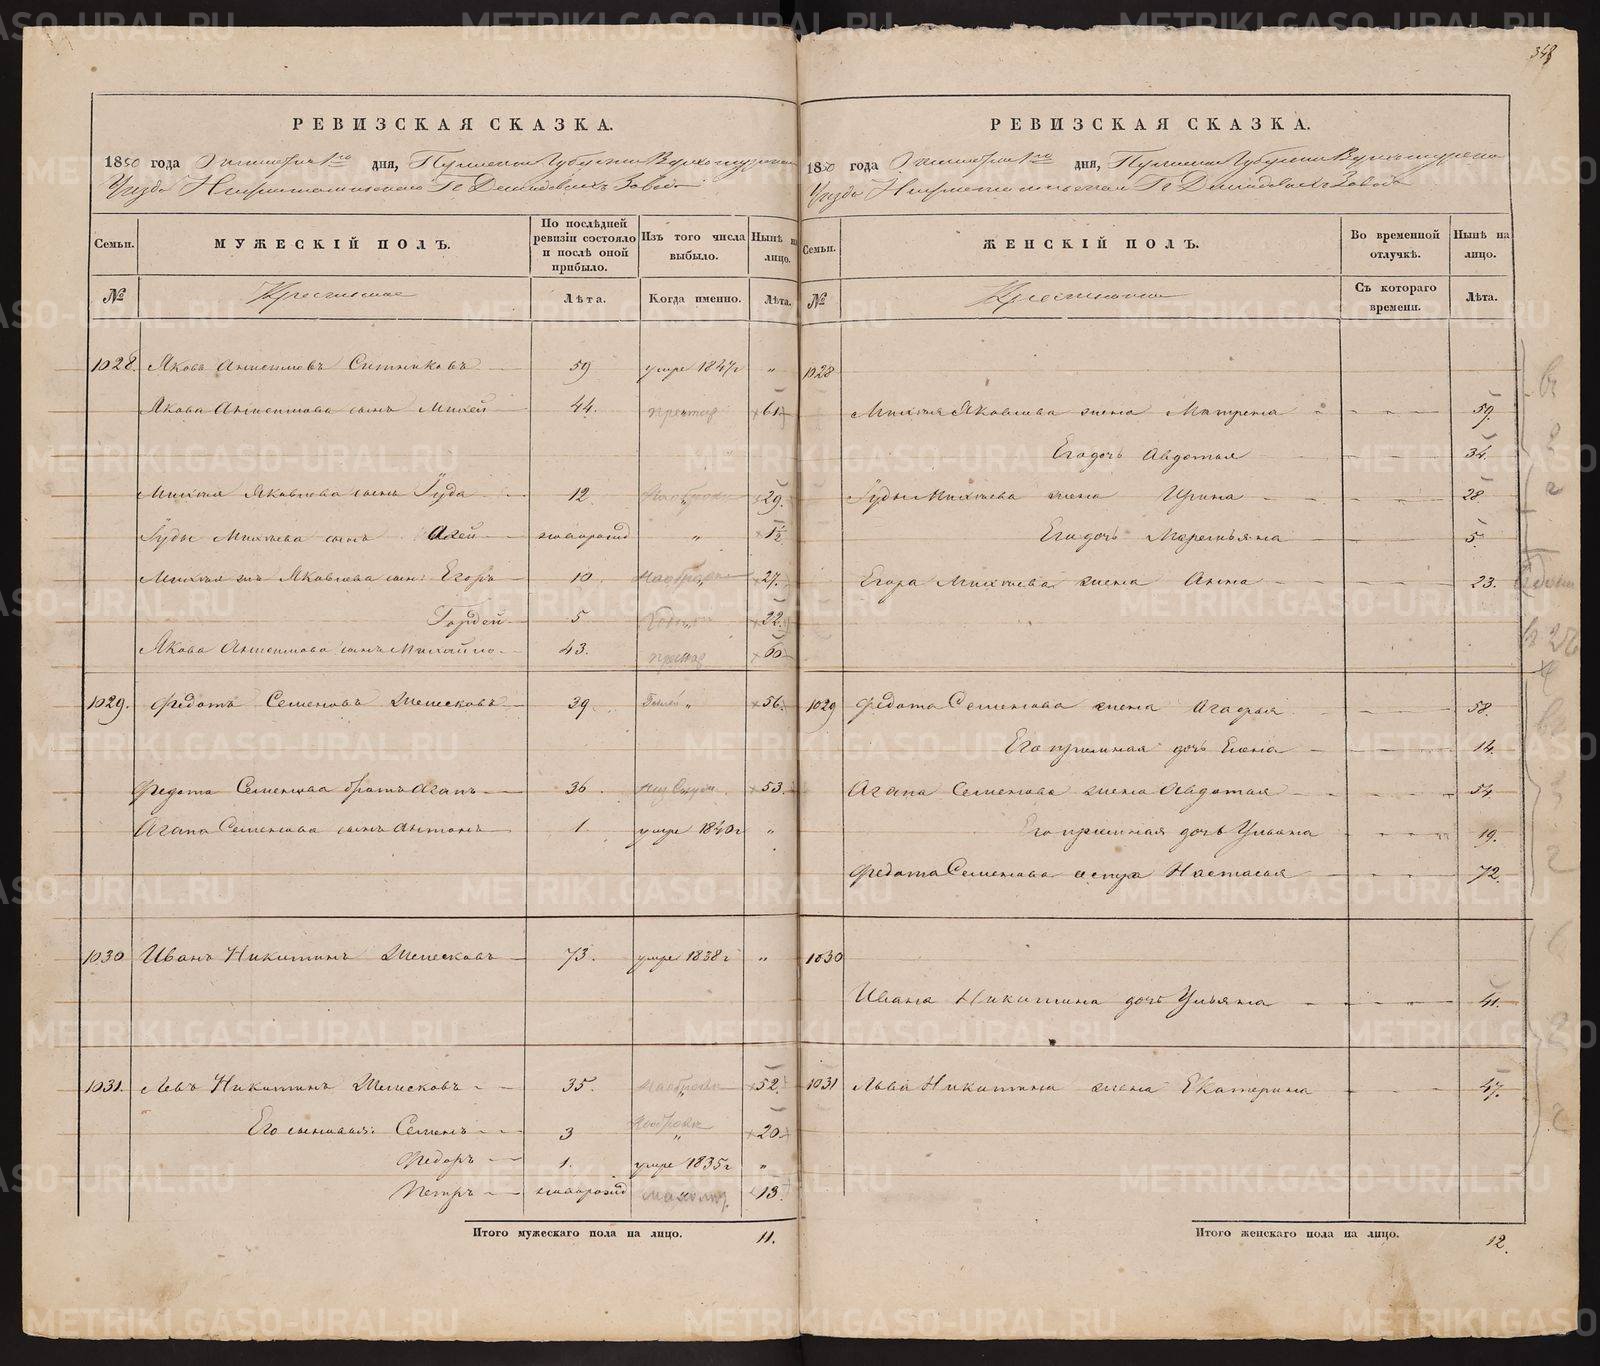 348
РЕВИЗСКАЯ СКАЗКА.
1850 года Октября 1го дня, Пермской Губернии Верхотурского
Уезда Нижнетагильского Гг Демидовыхъ Завода
Семьи.
МУЖЕСКІЙ ПОЛЪ.
По послѣдней ревизіи состояло и послѣ оной прибыло.
Изъ того числа выбыло.
Нынѣ на лицо.
№
Крестьяне
Лѣта.
Когда именно.
Лѣта.
1028. Якова Антиповъ Ситниковъ 59 умре 1847 г „
Якова Антипова сынъ Михей 44. 61
Михея Яковлева сынъ Іуда 12. 29.
Іуды Михеева сынъ новорожд „ 1½
Михея жъ Яковлева сын: Егоръ 10. 27.
Гордей 5 22.
Якова Антипова сынъ Михайло 43. 60
1029. Федотъ Семеновъ 39 „ 56.
Федота Семенова братъ Агапъ 36. 53.
Агапа Семенова сынъ Антонъ 1 умре 1840 г „
1030 Иванъ Никитинъ 73. умре 1838 г „
1031. Левъ Никитинъ 35. „ 52.
Его сыновья: Семенъ 3 „ 20
Федоръ 1. умре 1835 г „
Петръ новорожд 13.
Итого мужескаго пола на лицо. 11.
РЕВИЗСКАЯ СКАЗКА.
1850 года Октября 1го дня, Пермской Губернии Верхотурского
Уезда Нижнетагильского Гг Демидовыхъ Завода
Семьи.
ЖЕНСКІЙ ПОЛЪ.
Во временной отлучкѣ.
Нынѣ на лицо.
№
Крестьяне
Съ котораго времени.
Лѣта.
1028
Михея Яковлева жена Матрена 59.
Его дочь Авдотья 34.
Іуды Михеева жена Ирина 28
Его дочь Маремьяна 5.
Егора Михеева жена Анна 23.
1029 Федота Семенова жена Агафья 58.
Его приемная дочь Елена 14.
Агапа Семенова жена Авдотья 54.
Его приемная дочь Ульяна 19.
Федота Семенова сестра Настасья 72.
1030
Ивана Никитина дочь Ульяна 41.
1031 Льва Никитина жена Екатерина 47.
Итого женскаго пола на лицо. 12.
METRIKI.GASO-URAL.RU